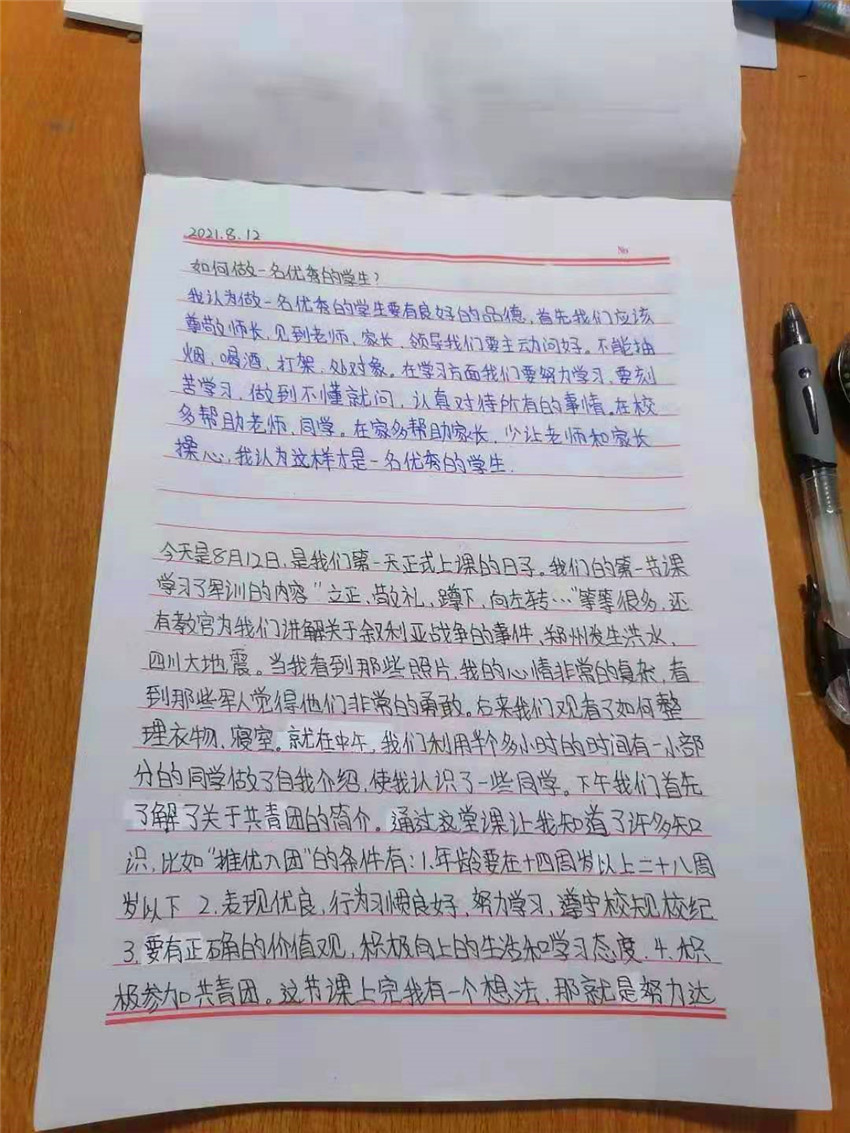 2021.8.12
No
如何做一名优秀的学生?
我认为做一名优秀的学生要有良好的品德,首先我们应该
尊敬师长,见到老师、家长、领导我们要主动问好。不能抽
烟、喝酒、打架、处对象。在学习方面我们要努力学习,要刻
苦学习,做到不懂就问,认真对待所有的事情。在校
多帮助老师、同学。在家多帮助家长,少让老师和家长
操心,我认为这样才是一名优秀的学生.
今天是8月12日,是我们第一天正式上课的日子。我们的第一节课
学习了军训的内容"立正、敬礼、蹲下、向左转…"等等很多,还
有教官为我们讲解关于叙利亚战争的事件、郑州发生洪水、
四川大地震。当我看到那些照片,我的心情非常的复杂,看
到那些军人觉得他们非常的勇敢。后来我们观看了如何整
理衣物、寝室。就在中午,我们利用半个多小时的时间有一小部
分的同学做了自我介绍,使我认识了一些同学。下午我们首先
了解了关于共青团的简介。通过这堂课让我知道了许多知
识,比如"推优入团"的条件有:1.年龄要在十四周岁以上二十八周
岁以下 2.表现优良,行为习惯良好,努力学习,遵守校规校纪
3.要有正确的价值观,积极向上的生活和学习态度.4.积
极参加共青团。这节课上完我有一个想法,那就是努力达